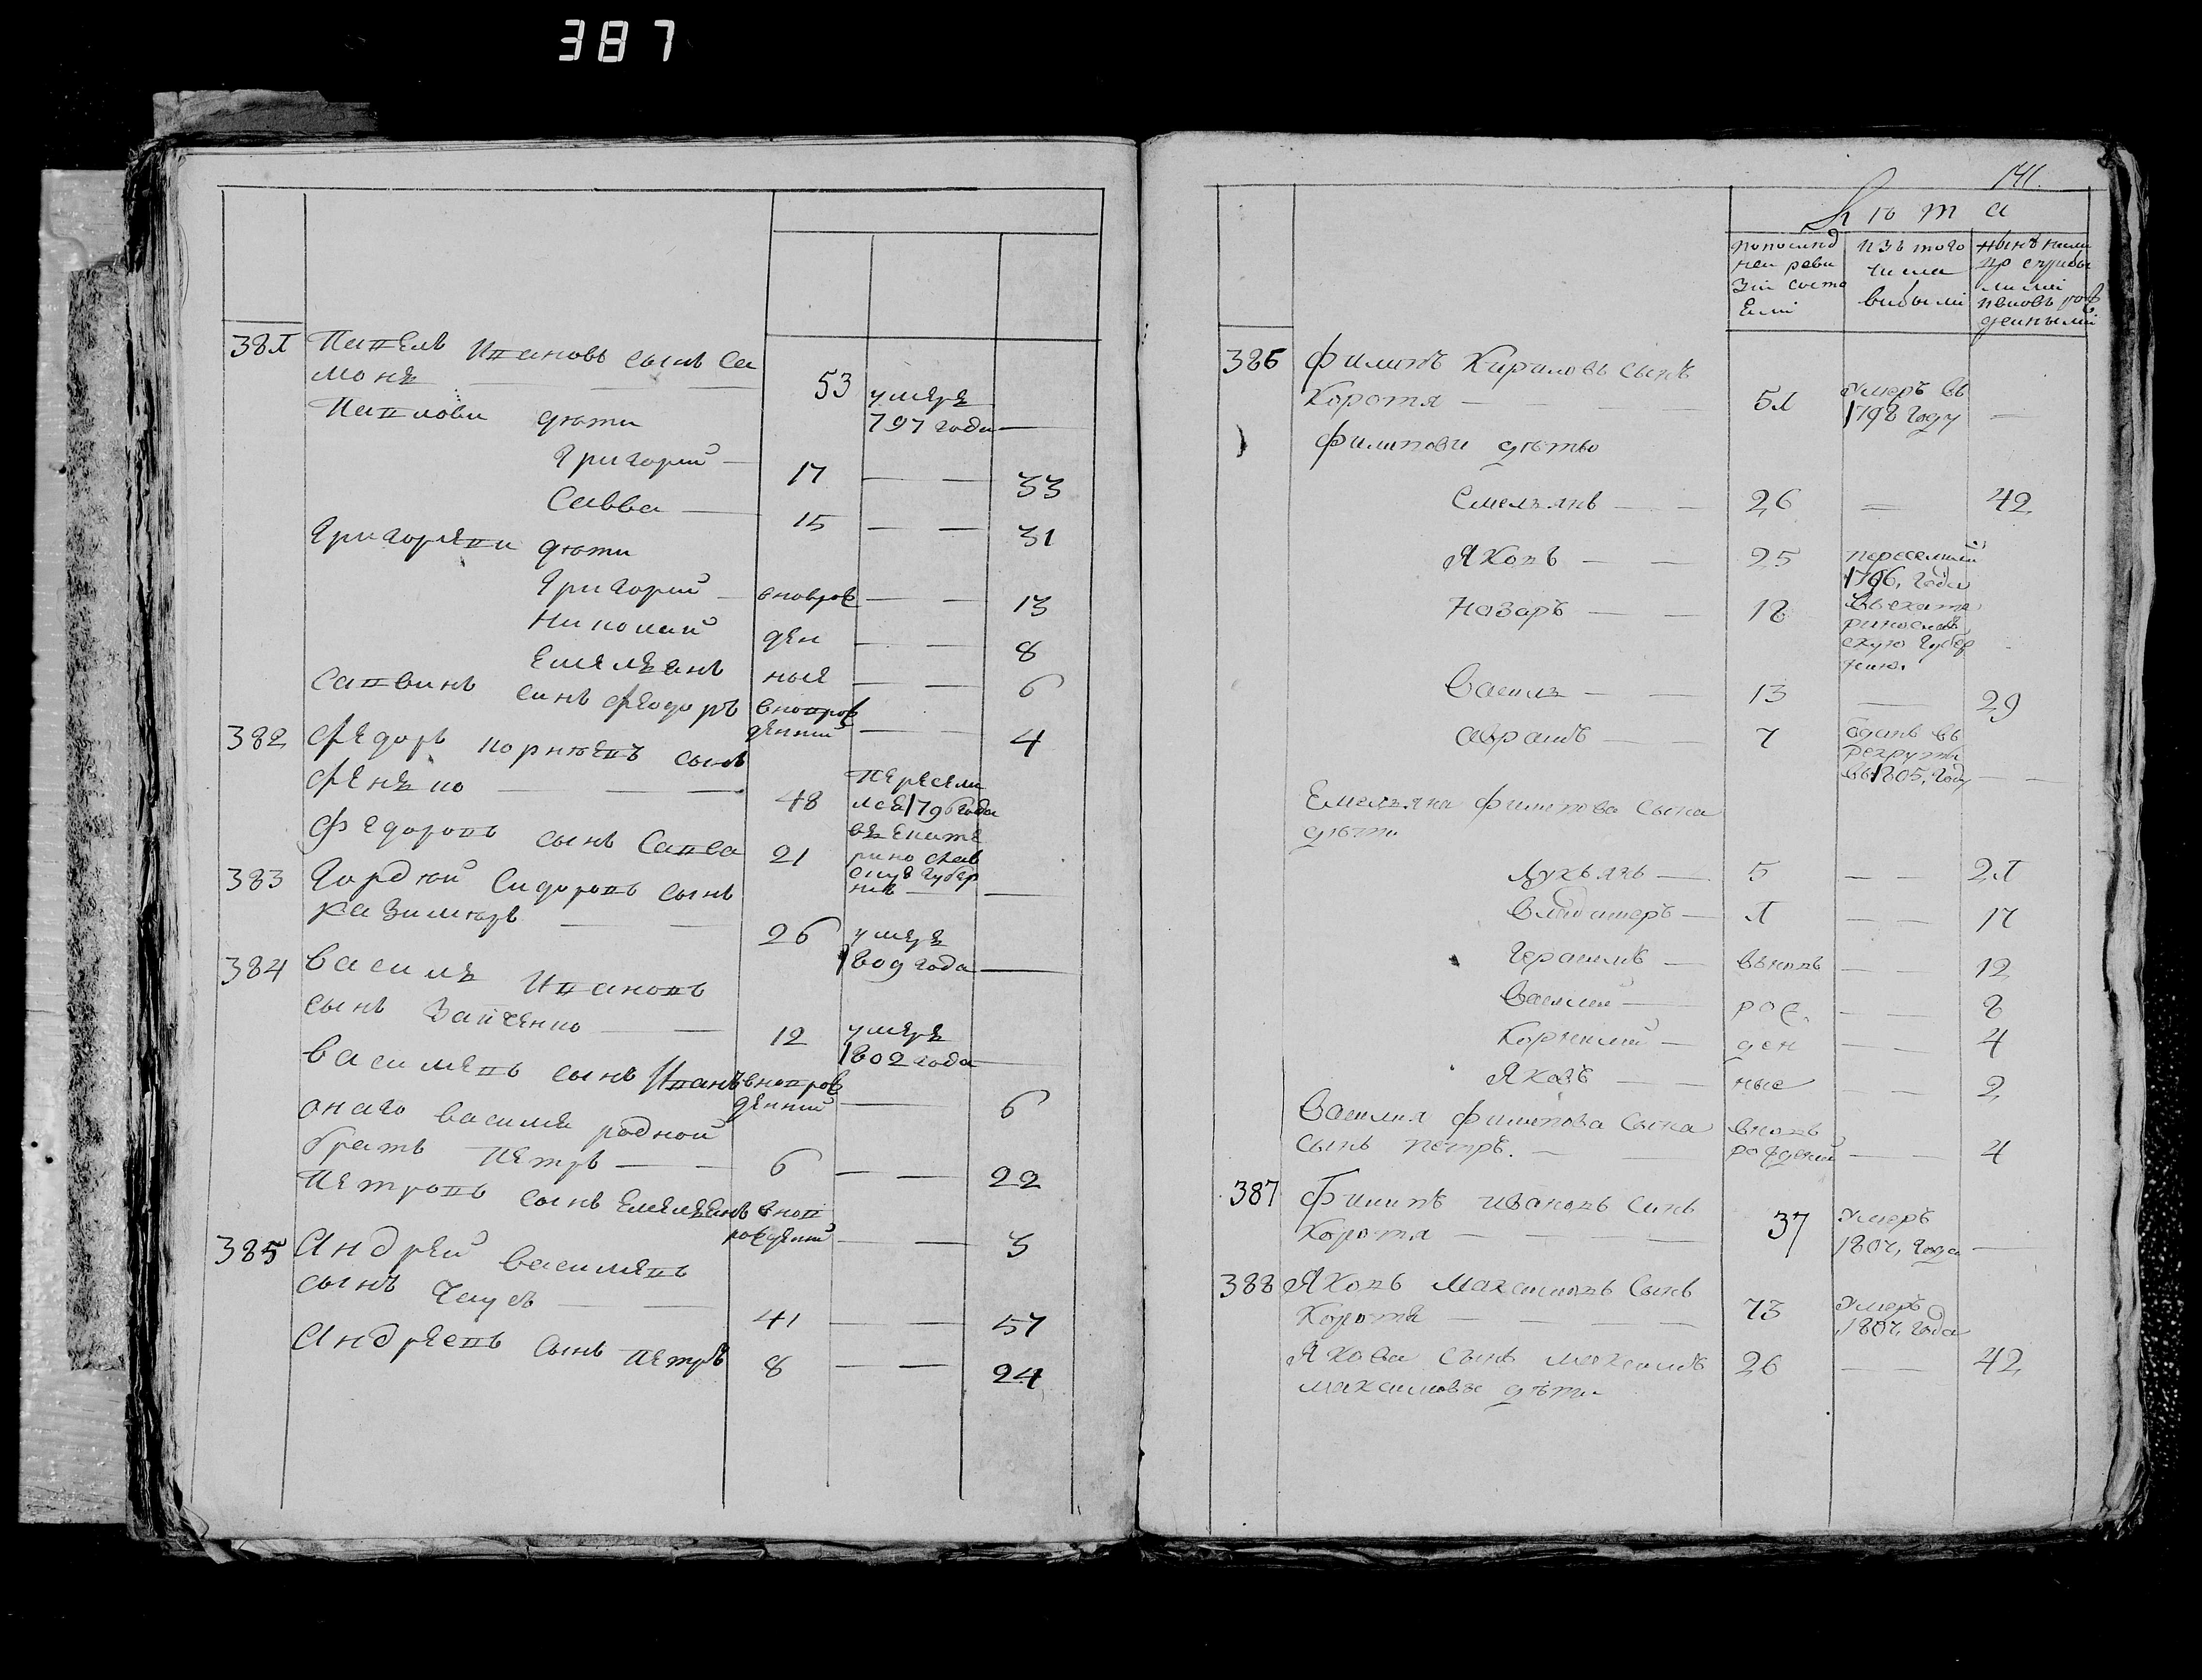 387
381 Павелъ Ивановъ сынъ Са
монъ — — 53 умеръ
797 года —
Павлови дѣти
Григорий — 17 — — 33
Савва — 15 — — 31
Григорьеви дѣти
Григорий — вновьрож — — 13
Николай ден — — 8
Емельянъ ные — — 6
Саввинъ синъ Феодоръ вновьрож
денний — — 4
382 Федоръ Корнѣевъ сынъ
Фенько — — 48 Пересели
лся 1796 года
въ Екате
рино слав
скую губер
нию —
Федоровъ сынъ Савва 21
383 Гордѣй Сидоровъ сынъ
Казимѣръ — — 26 умеръ
1809 года —
384 Василь Ивановъ
сынъ Зайченко — — 12 умеръ
1802 года —
Василевъ сынъ Иванъ вновьрож
денний — 6
онаго Василя родной
братъ Петръ — — 6 — — 22
Петровъ сынъ Емельянъ внов
рожденний — — 3
385 Андрей Василевъ
сынъ Чаусъ — — 41 — — 57
Андреевъ сынъ Петръ 8 — — 24
141.
Лѣта
по послед
ней реви
зии состо
яли
изъ того
числа
выбыли
386 Филипъ Кириловъ сынъ
Коротя — — — 51 Умеръ въ
1798 году —
Филипови дѣти
Емельянъ — — 26 = 42
Яковъ — — 25 переселились
1796, года
Назаръ — — 18 въ екате
ринослав
скую губер
нию.
Василь — — 13 — 29
Абрамъ — — 7 Отданъ въ
рекруты
въ 1805, году — —
Емельяна Филипова сына
дѣти
Лукьянъ — 5 — — 21
Владимеръ — 1 — — 17
Герасимъ — вновь — — 12
Василий — рож — — 8
Корнилий — ден — — 4
Яковъ — — ные — — 2
Василия Филипова сына вновь
сынъ Петръ. — — рожденный — — 4
387 Филипъ Ивановъ синъ
Коротя — — — 37 Умеръ
1807, года —
388 Яковъ Максимовъ сынъ
Коротя — — — 73 Умеръ
1807, года
Якова сынъ Максимъ 26 — — 42
Максимовы дѣти